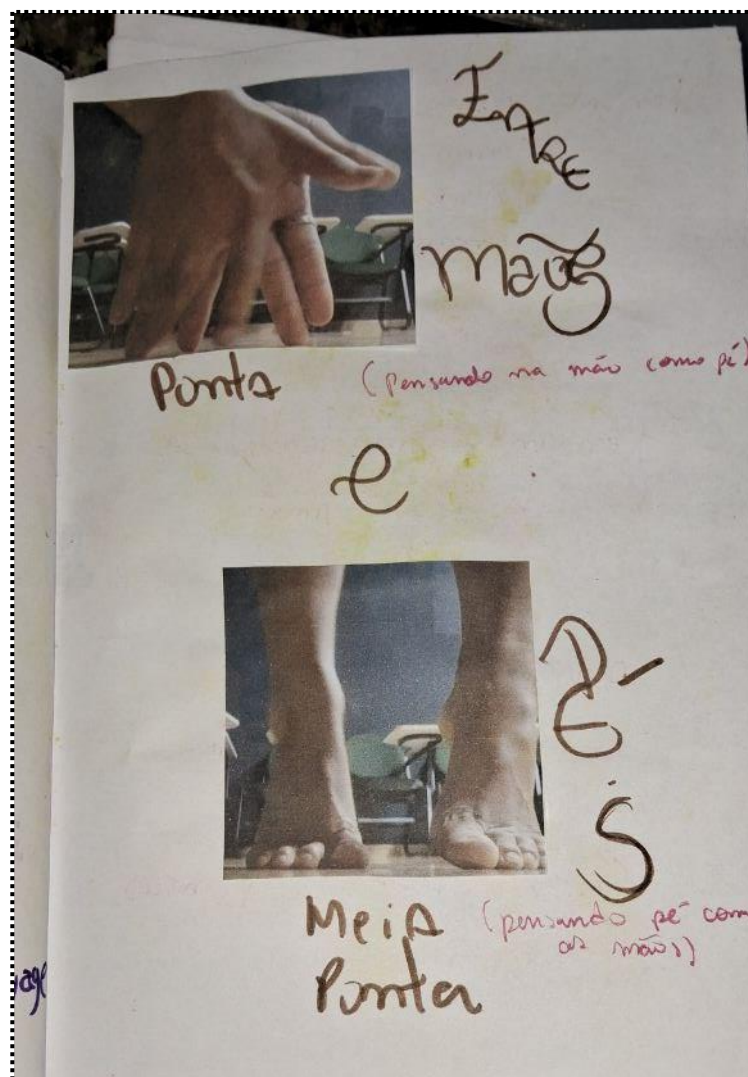 Entre
mãos
Ponta
(pensando na mão como pé)
e
Pé
s
Meia
Ponta
(pensando pé com
as mãos)